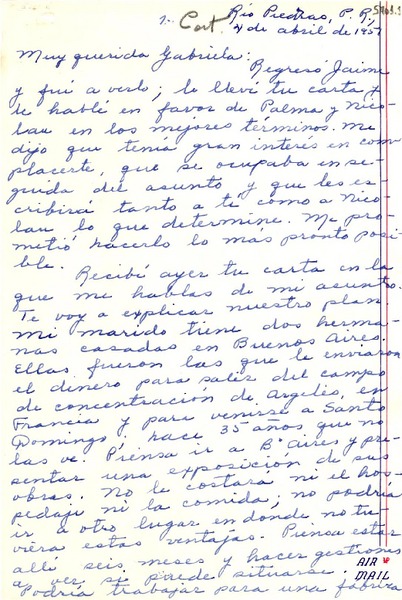 1. Cart. Río Piedras, P. R.,
4 de abril de 1951
Muy querida Gabriela:
Regresó Jaime
y fuí a verlo; le llevé tu carta y
le hablé en favor de Palma y Nico-
lau en los mejores términos. Me
dijo que tenía gran interés en com
placerte, que se ocupaba en se-
guida del asunto y que les es-
cribirá tanto a tí como a Nico-
lau lo que determine. Me pro-
metió hacerlo lo más pronto posi
ble.
Recibí ayer tu carta en la
que me hablas de mi asunto.
Te voy a explicar nuestro plan.
Mi marido tiene dos herma-
nas casadas en Buenos Aires.
Ellas fueron las que le enviaron
el dinero para salir del campo
de concentración de Argelés, en
Francia y para venirse a Santo
Domingo; hace 35 años que no
las ve. Piensa ir a B. Aires y pre-
sentar una exposición de sus
obras. No le costará ni el hos-
pedaje ni la comida; no podría
ir a otro lugar en donde no tu-
viera estas ventajas. Piensa estar
allí seis meses y hacer gestiones
a ver si puede situarse.
Podría trabajar para una fábrica
AIR
MAIL